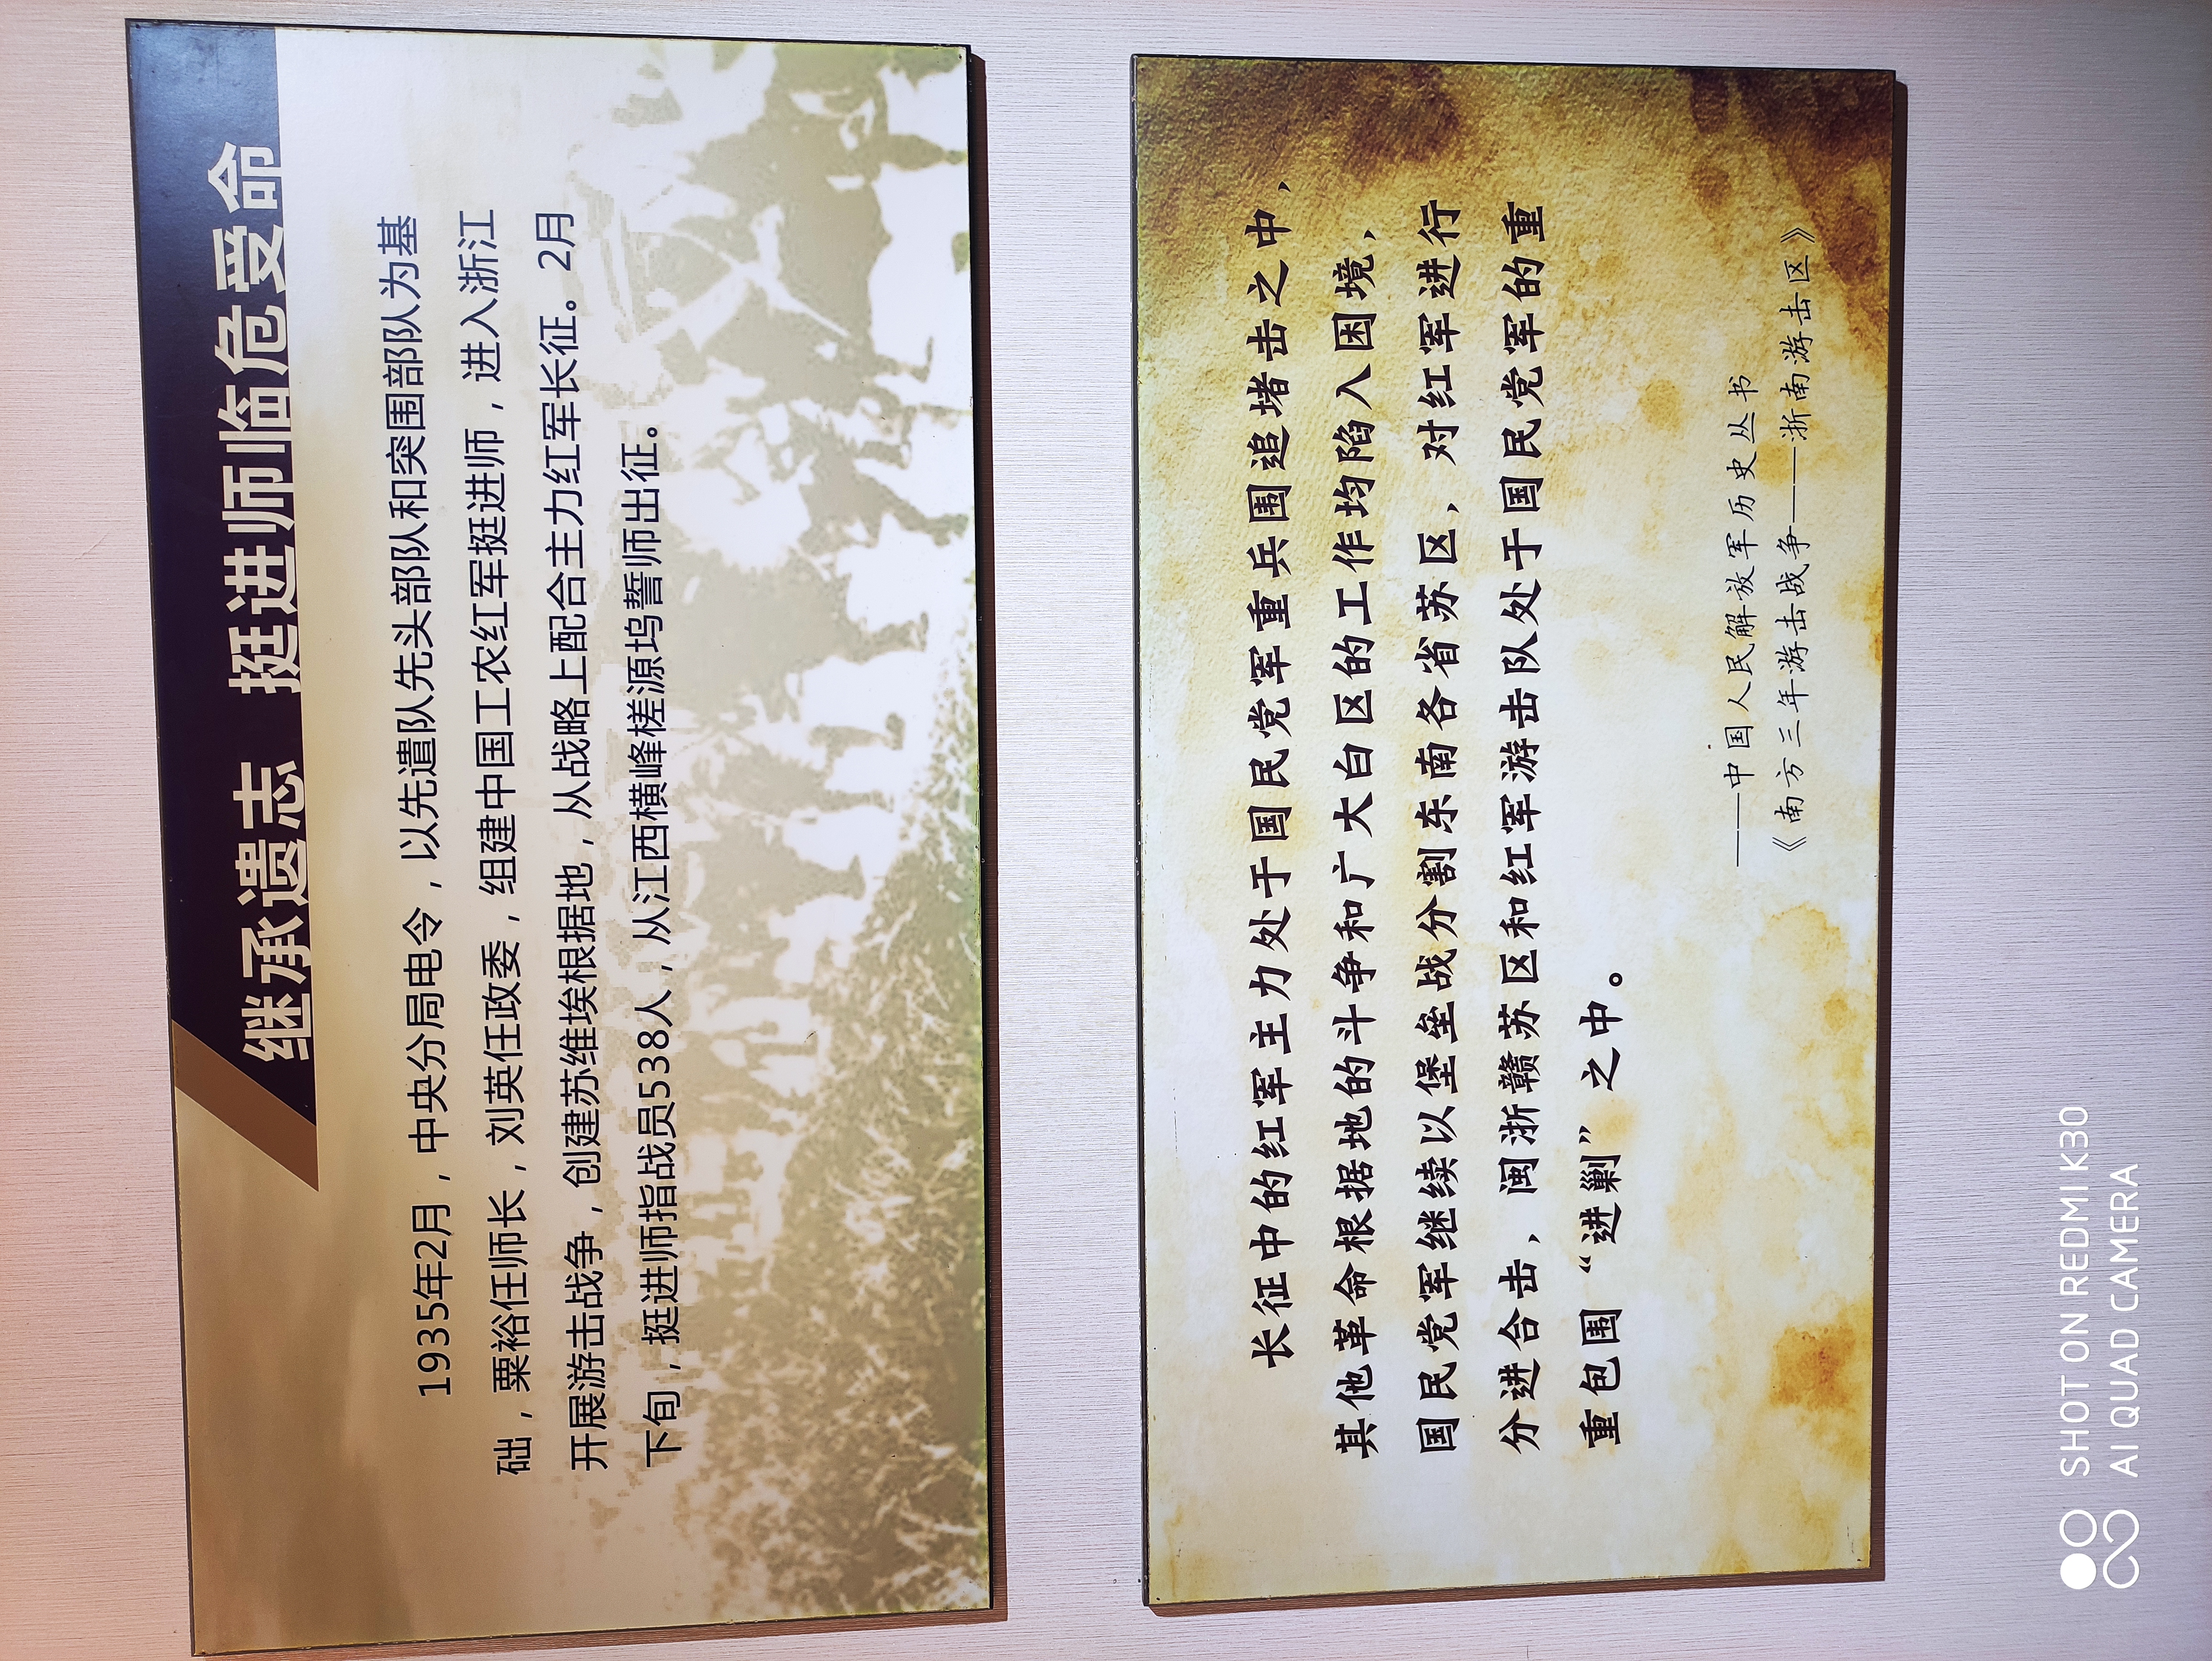 继承遗志 挺进师临危受命
1935年2月，中央分局电令，以先遣队先头部队和突围部队为基
础，粟裕任师长，刘英任政委，组建中国工农红军挺进师，进入浙江
开展游击战争，创建苏维埃根据地，从战略上配合主力红军长征。2月
下旬，挺进师指战员538人，从江西横峰槎源坞誓师出征。
长征中的红军主力处于国民党军重兵围追堵击之中，
其他革命根据地的斗争和广大白区的工作均陷入困境，
国民党军继续以堡垒战分割东南各省苏区，对红军进行
分进合击，闽浙赣苏区和红军游击队处于国民党军的重
重包围“进剿”之中。
——中国人民解放军历史丛书
《南方三年游击战争——浙南游击区》
SHOT ON REDMI K30
AI QUAD CAMERA